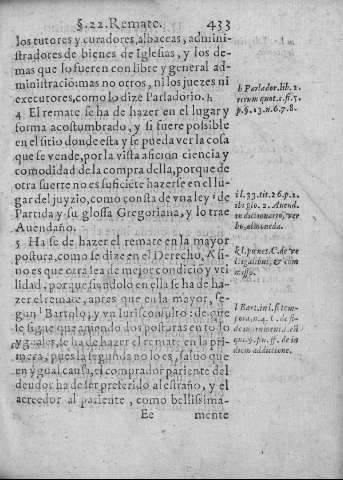 §. 22. Remate. 433
los tutores y curadores, albaceas, admini-
stradores de bienes de Iglesias, y los de-
mas que lo fueren con libre y general ad-
ministració: mas no otros, ni los juezes ni
executores, como lo dize Parladorio. h
4 El remate se ha de hazer en el lugar y
forma acostumbrado, y si fuere possible
en el sitio donde esta y se pueda ver la cosa
que se vende, por la vista afició ciencia y
comodidad de la compra della, porque de
otra suerte no es suficiéte hazerse en el lu-
gar del juyzio, como consta de vna ley, i de
Partida y su glossa Gregoriana, y lo trae
Auendaño.
5 Ha se de hazer el remate en la mayor
postura, como se dize en el Derecho, k si
no es que otra sea de mejor condició y vti
lidad, porque siendolo en ella se ha de ha-
zer el remate, antes que en la mayor, se-
gun l Bartolo, y vn Iurisconsulto: de que
se sigue que auiendo dos posturas en todo
yguales, se ha de hazer el remate en la pri-
mera, pues la segunda no lo es, saluo que
en ygual causa, el comprador pariente del
deudor ha de ser preferido al estraño, y el
acreedor al pariente, como bellissima-
Ee mente
h Parlador. lib. 2.
rerum quot. c. fi. 5.
p. §. 13. n. 6. 7. 8.
i l. 33. tit. 26. p. 2.
ibi glo. 2. Auend.
in dictionario, ver
bo, almoneda.
k l. penet C. de ve
ctigalibus, & com
missis.
l Bart. in l. si tem-
pora, n. 4. C. de fi-
de instrumentor.
diem addictione.